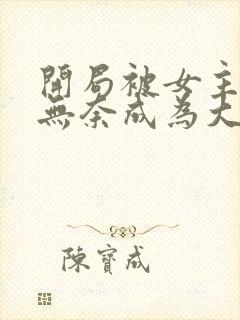 開局被女主
無奈成為大
陳寶成